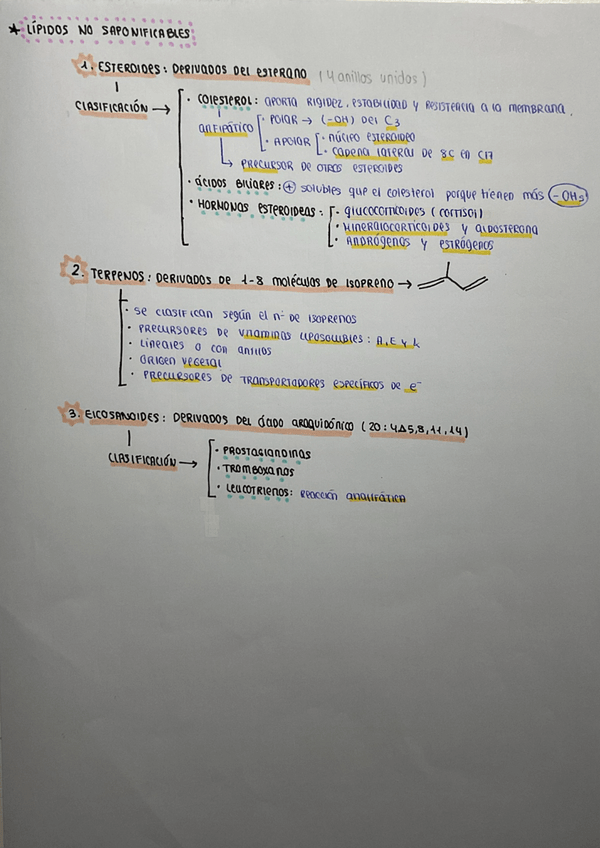 * LÍPIDOS NO SAPONIFICABLES
1. ESTEROIDES: DERIVADOS DEL ESTERANO (4 anillos unidos)
CLASIFICACIÓN →
· COLESTEROL: APORTA RIGIDEZ, ESTABILIDAD Y RESISTENCIA A LA MEMBRANA.
ANFIPÁTICO
· POLAR → (-OH) DEL C3
· APOLAR
· NÚCLEO ESTEROIDEO
· CADENA LATERAL DE 8C EN C17
↳ PRECURSOR DE OTROS ESTEROIDES
· ÁCIDOS BILIARES: ⊕ solubles que el colesterol porque tienen más (-OHs)
· HORMONAS ESTEROIDEAS:
· GLUCOCORTICOIDES (CORTISOL)
· MINERALOCORTICOIDES Y ALDOSTERONA
· ANDRÓGENOS Y ESTRÓGENOS
2. TERPENOS: DERIVADOS DE 1-8 moléculas DE ISOPRENO →
· SE CLASIFICAN SEGÚN EL nº DE ISOPRENOS
· PRECURSORES DE VITAMINAS LIPOSOLUBLES: A, E Y K
· LINEALES O CON ANILLOS
· ORIGEN VEGETAL
· PRECURSORES DE TRANSPORTADORES ESPECÍFICOS DE e⁻
3. EICOSANOIDES: DERIVADOS DEL ácido araquidónico (20:4Δ5,8,11,14)
CLASIFICACIÓN →
· PROSTAGLANDINAS
· TROMBOXANOS
· LEUCOTRIENOS: REACCIÓN ANALIFÁTICA